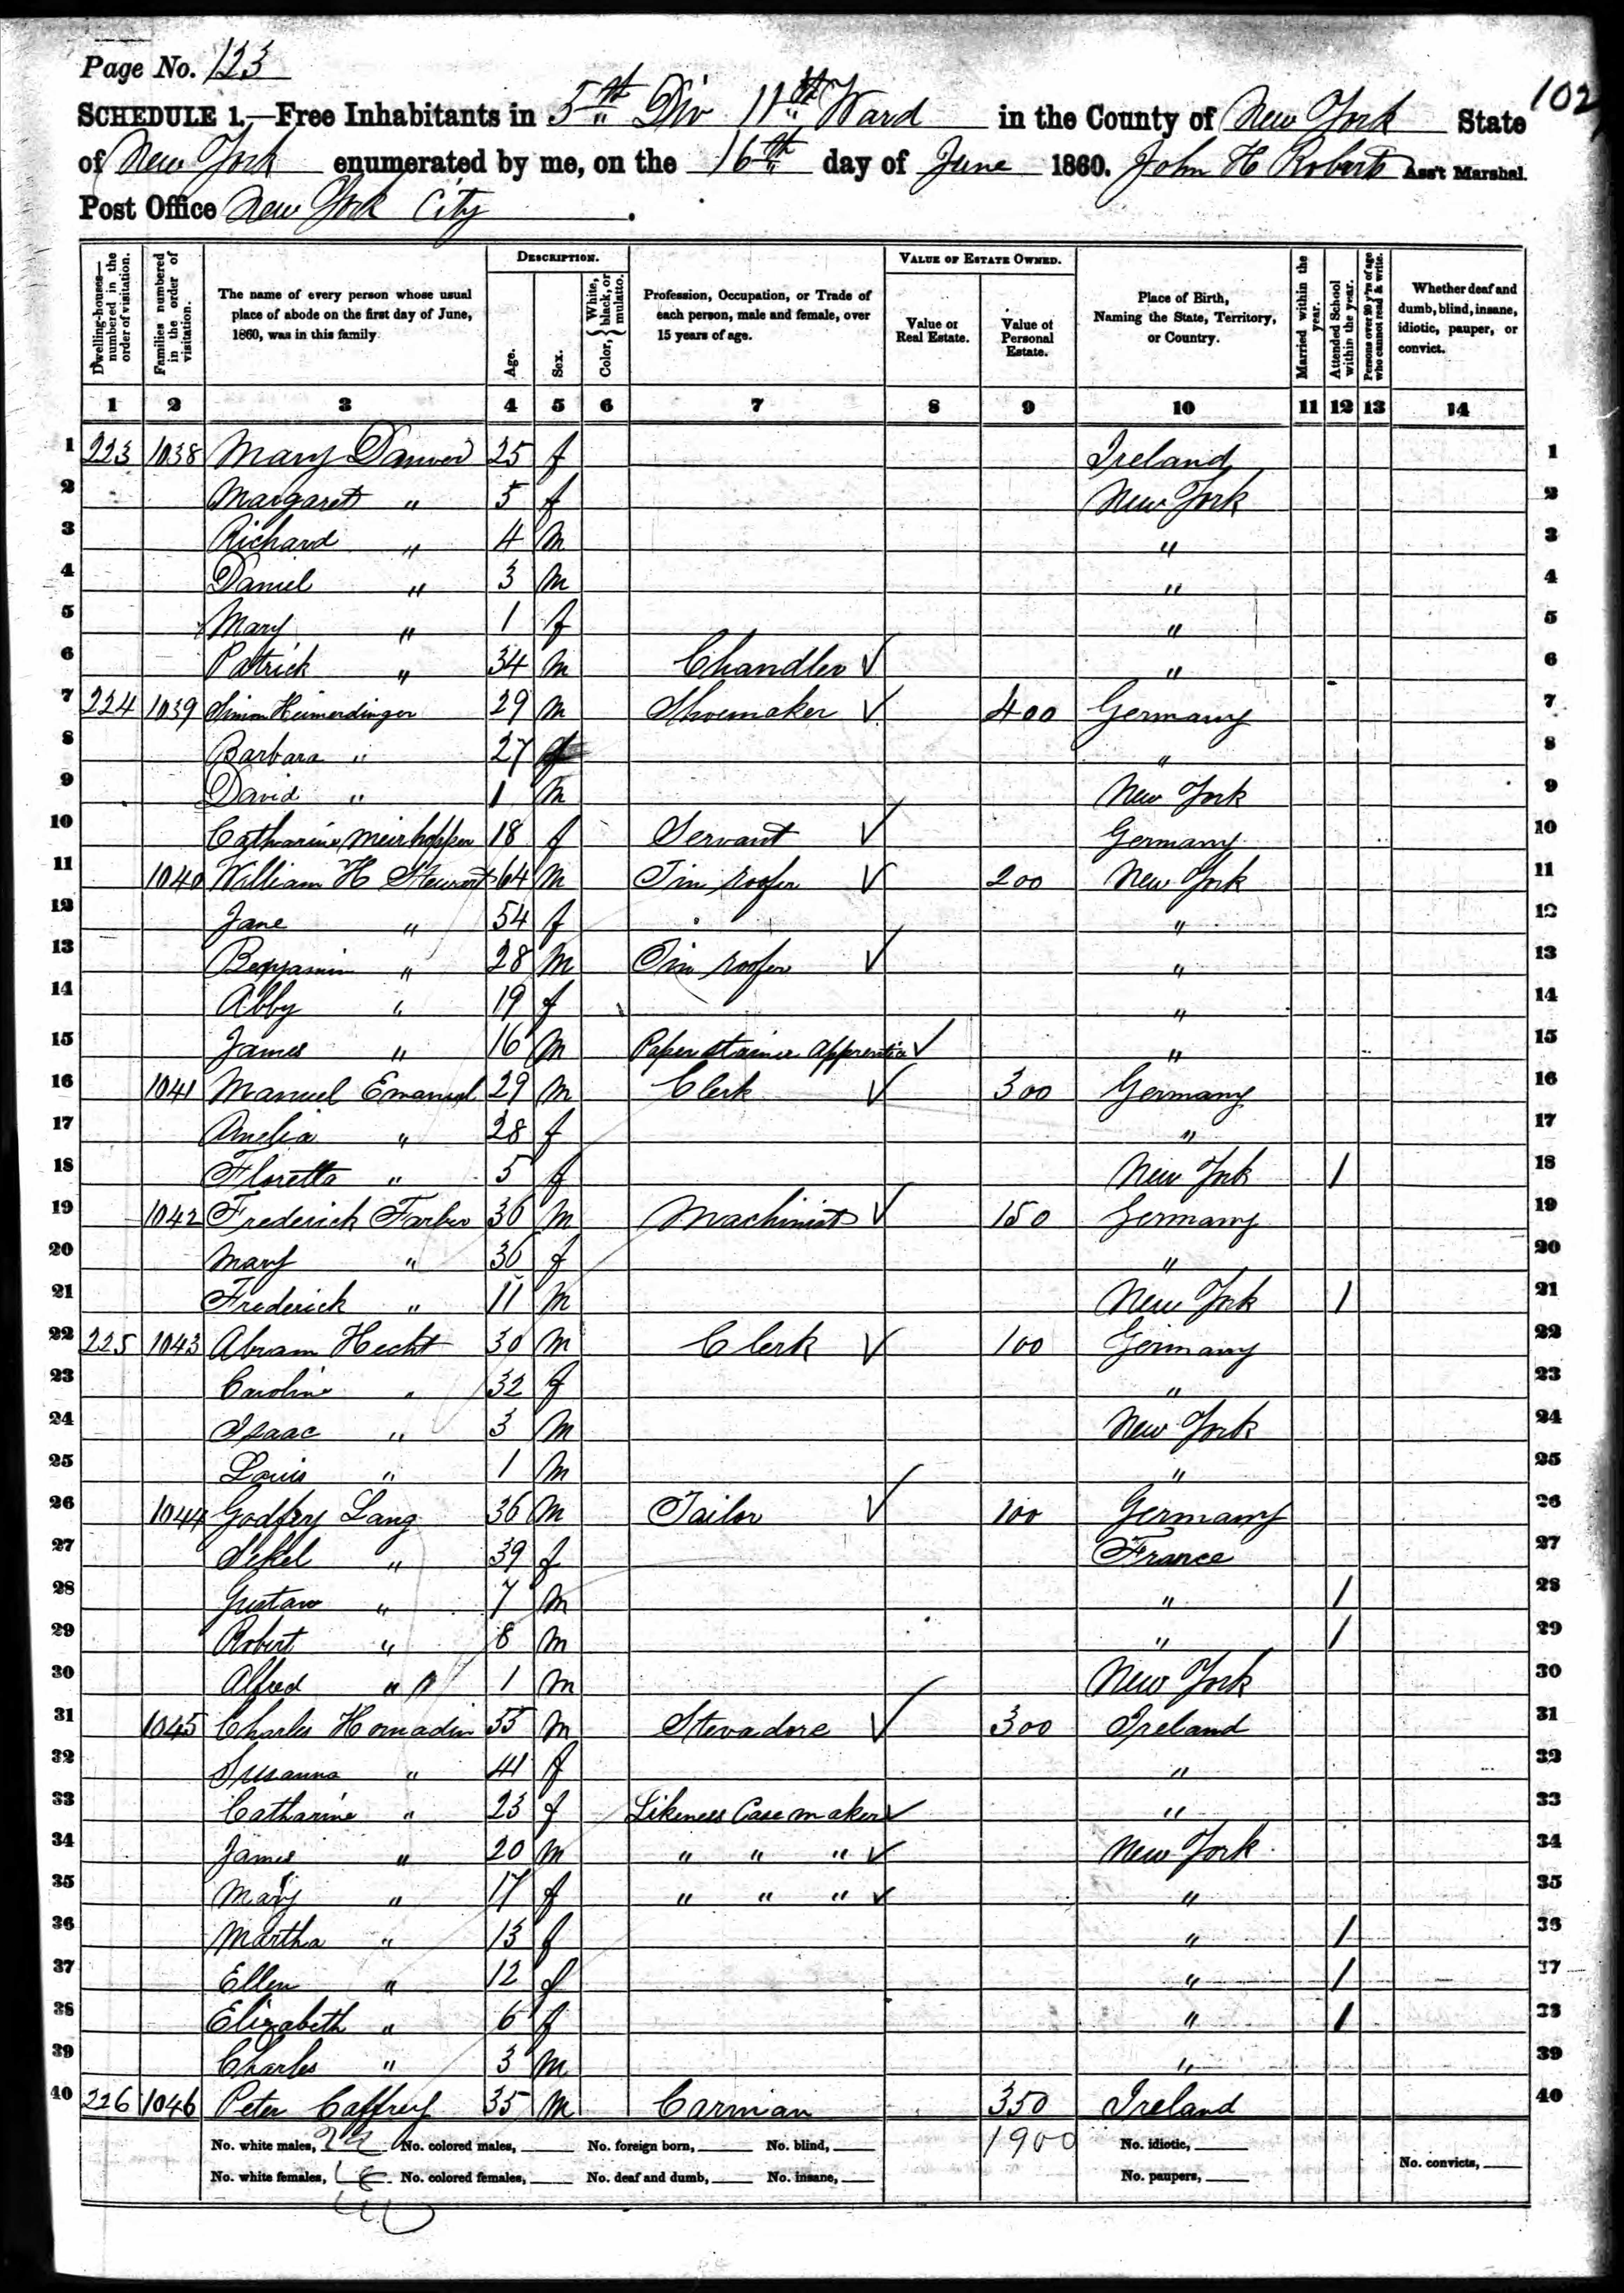 Page No. 123
102
SCHEDULE 1.—Free Inhabitants in 5th Div 11th Ward in the County of New York State
of New York enumerated by me, on the 16th day of June 1860. John H Roberts Ass't Marshal.
Post Office New York City.
Dwelling-houses—numbered in the order of visitation.
Families numbered in the order of visitation.
The name of every person whose usual place of abode on the first day of June, 1860, was in this family.
DESCRIPTION.
Age.
Sex.
Color, { White, black, or mulatto.
Profession, Occupation, or Trade of each person, male and female, over 15 years of age.
VALUE OF ESTATE OWNED.
Value of Real Estate.
Value of Personal Estate.
Place of Birth, Naming the State, Territory, or Country.
Married within the year.
Attended School within the year.
Persons over 20 y'rs of age who cannot read & write.
Whether deaf and dumb, blind, insane, idiotic, pauper, or convict.
1 2 3 4 5 6 7 8 9 10 11 12 13 14
1 223 1038 Mary 25 f Ireland 1
2 Margaret " 5 f New York 2
3 Richard " 4 m " 3
4 Daniel " 3 m " 4
5 Mary " 1 f " 5
6 Patrick " 34 m Chandler ✓ " 6
7 224 1039 Simon Heimerdinger 29 m Shoemaker ✓ 400 Germany 7
8 Barbara " 27 f " 8
9 David " 1 m New York 9
10 Catharine Meirhopper 18 f Servant ✓ Germany 10
11 1040 William H Stewart 64 m Tin roofer ✓ 200 New York 11
12 Jane " 54 f " 12
13 Benjamin " 28 m Tin roofer ✓ " 13
14 Abby " 19 f " 14
15 James " 16 m Paper stainer apprentice ✓ " 15
16 1041 Manuel Emanuel 29 m Clerk ✓ 300 Germany 16
17 Amelia " 28 f " 17
18 Floretta " 5 f New York / 18
19 1042 Frederick Farber 36 m Machinist ✓ 150 Germany 19
20 Mary " 36 f " 20
21 Frederick " 11 m New York / 21
22 225 1043 Abram Hecht 30 m Clerk ✓ 100 Germany 22
23 Caroline " 32 f " 23
24 Isaac " 3 m New York 24
25 Louis " 1 m " 25
26 1044 Godfrey Lang 36 m Tailor ✓ 100 Germany 26
27 " 39 f France 27
28 Gustave " 7 m " / 28
29 Robert " 8 m " / 29
30 Alfred " 1 m New York 30
31 1045 Charles Hornadin 55 m Stevadore ✓ 300 Ireland 31
32 Susanna " 41 f " 32
33 Catharine " 23 f Likeness Case maker ✓ " 33
34 James " 20 m " " " ✓ New York 34
35 Mary " 17 f " " " ✓ " 35
36 Martha " 13 f " / 36
37 Ellen " 12 f " / 37
38 Elizabeth " 6 f " / 38
39 Charles " 3 m " 39
40 226 1046 Peter Caffrey 35 m Carman 350 Ireland 40
No. white males, 22 No. colored males, No. foreign born, No. blind, 1900 No. idiotic,
No. white females, 18 No. colored females, No. deaf and dumb, No. insane, No. paupers, No. convicts,
40